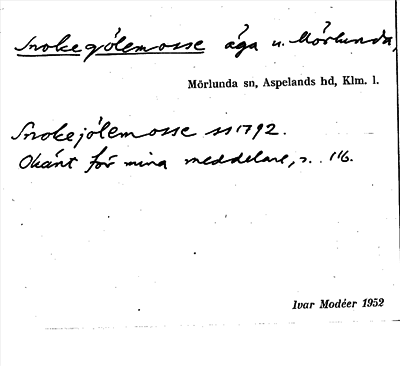 Snokegölemosse äga u. Mörlunda,
Mörlunda sn, Aspelands hd, Klm. l.
Snokejölemosse ss 1792.
Okänt för mina meddelare, 116.
Ivar Modéer 1952